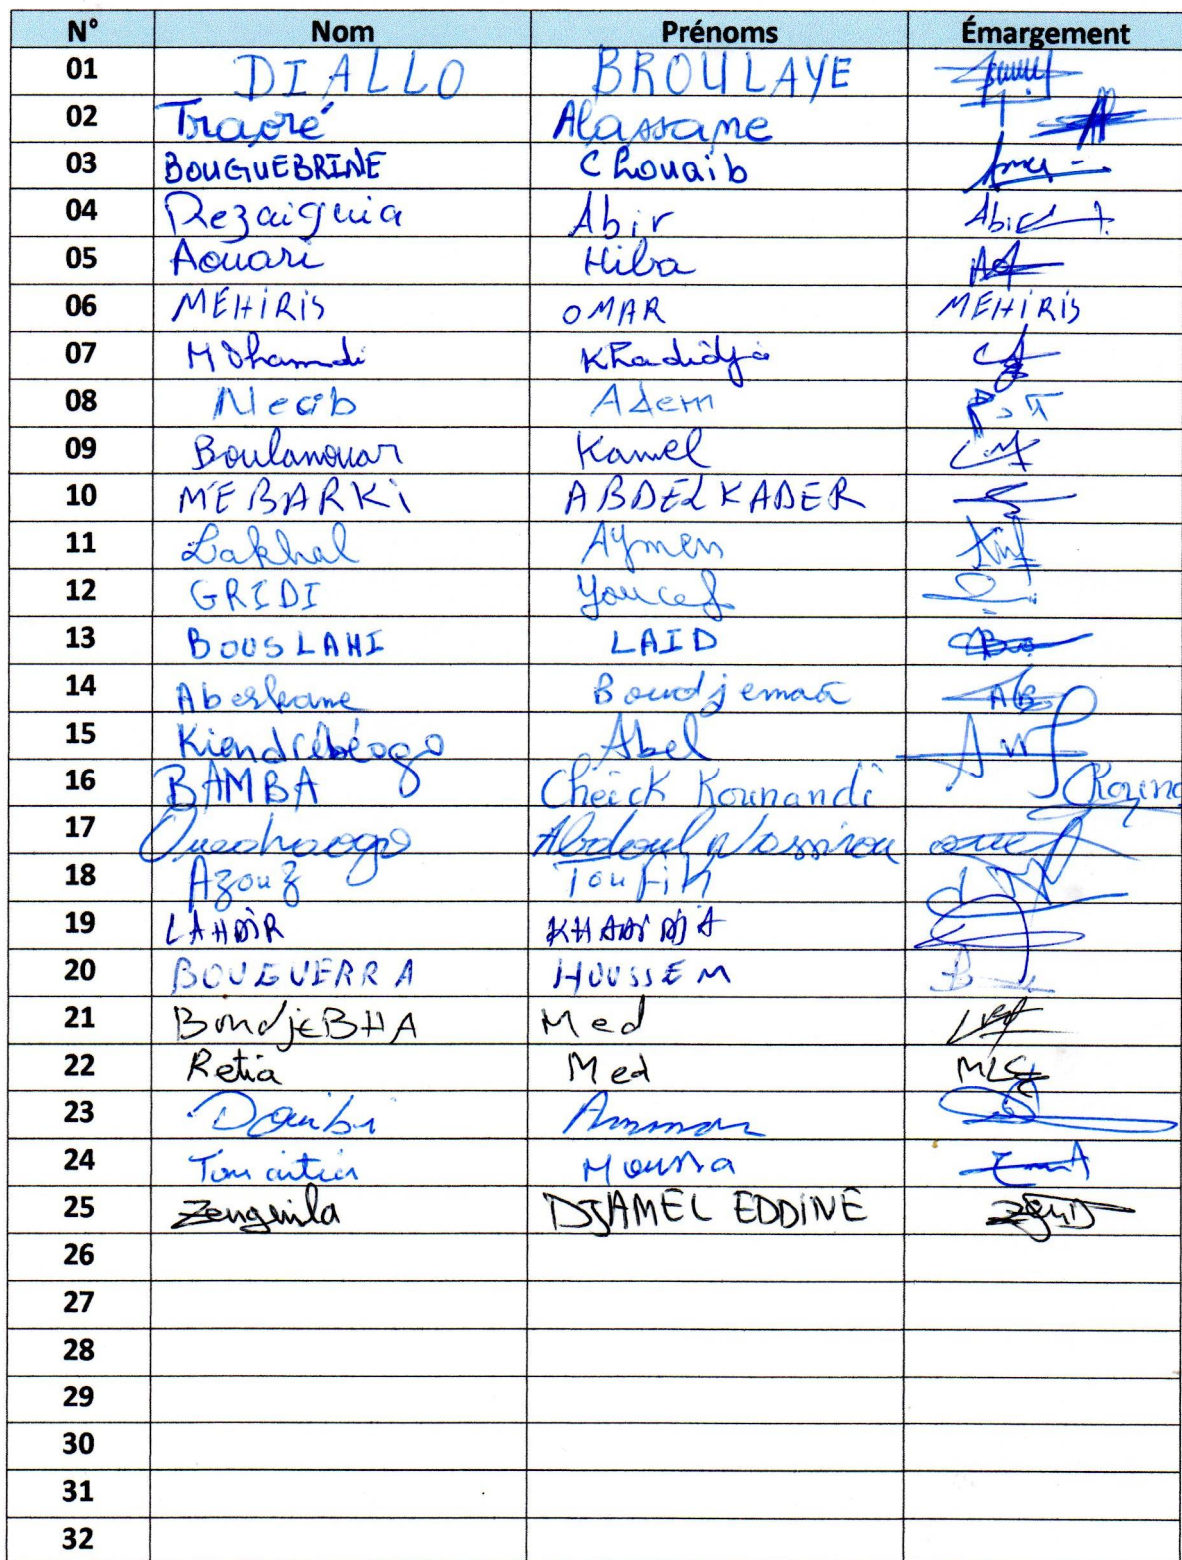 N° Nom Prénoms Émargement
01 DIALLO BROULAYE
02 Traoré Alassane
03 BOUGUEBRINE Chouaib
04 Rezaiguia Abir Abir
05 Aouari Hiba
06 MEHIRIS OMAR MEHIRIS
07 Mohamdi Khadidja
08 Necib Adem
09 Boulanouar Kamel
10 MEBARKI ABDELKADER
11 Lakhal Aymen
12 GRIDI Youcef
13 BOUSLAHI LAID
14 Aberkane Boudjemaa AB
15 Kiendrébéogo Abel
16 BAMBA Cheick Kounandi
17 Ouedraogo Abdoul Nassirou
18 Azouz Toufik
19 LAHDIR KHADIDJA
20 BOUGUERRA HOUSSEM B
21 BoudjeBHA Med
22 Retia Med
23 Daubi Ammar
24 Moussa
25 DJAMEL EDDINE
26
27
28
29
30
31
32